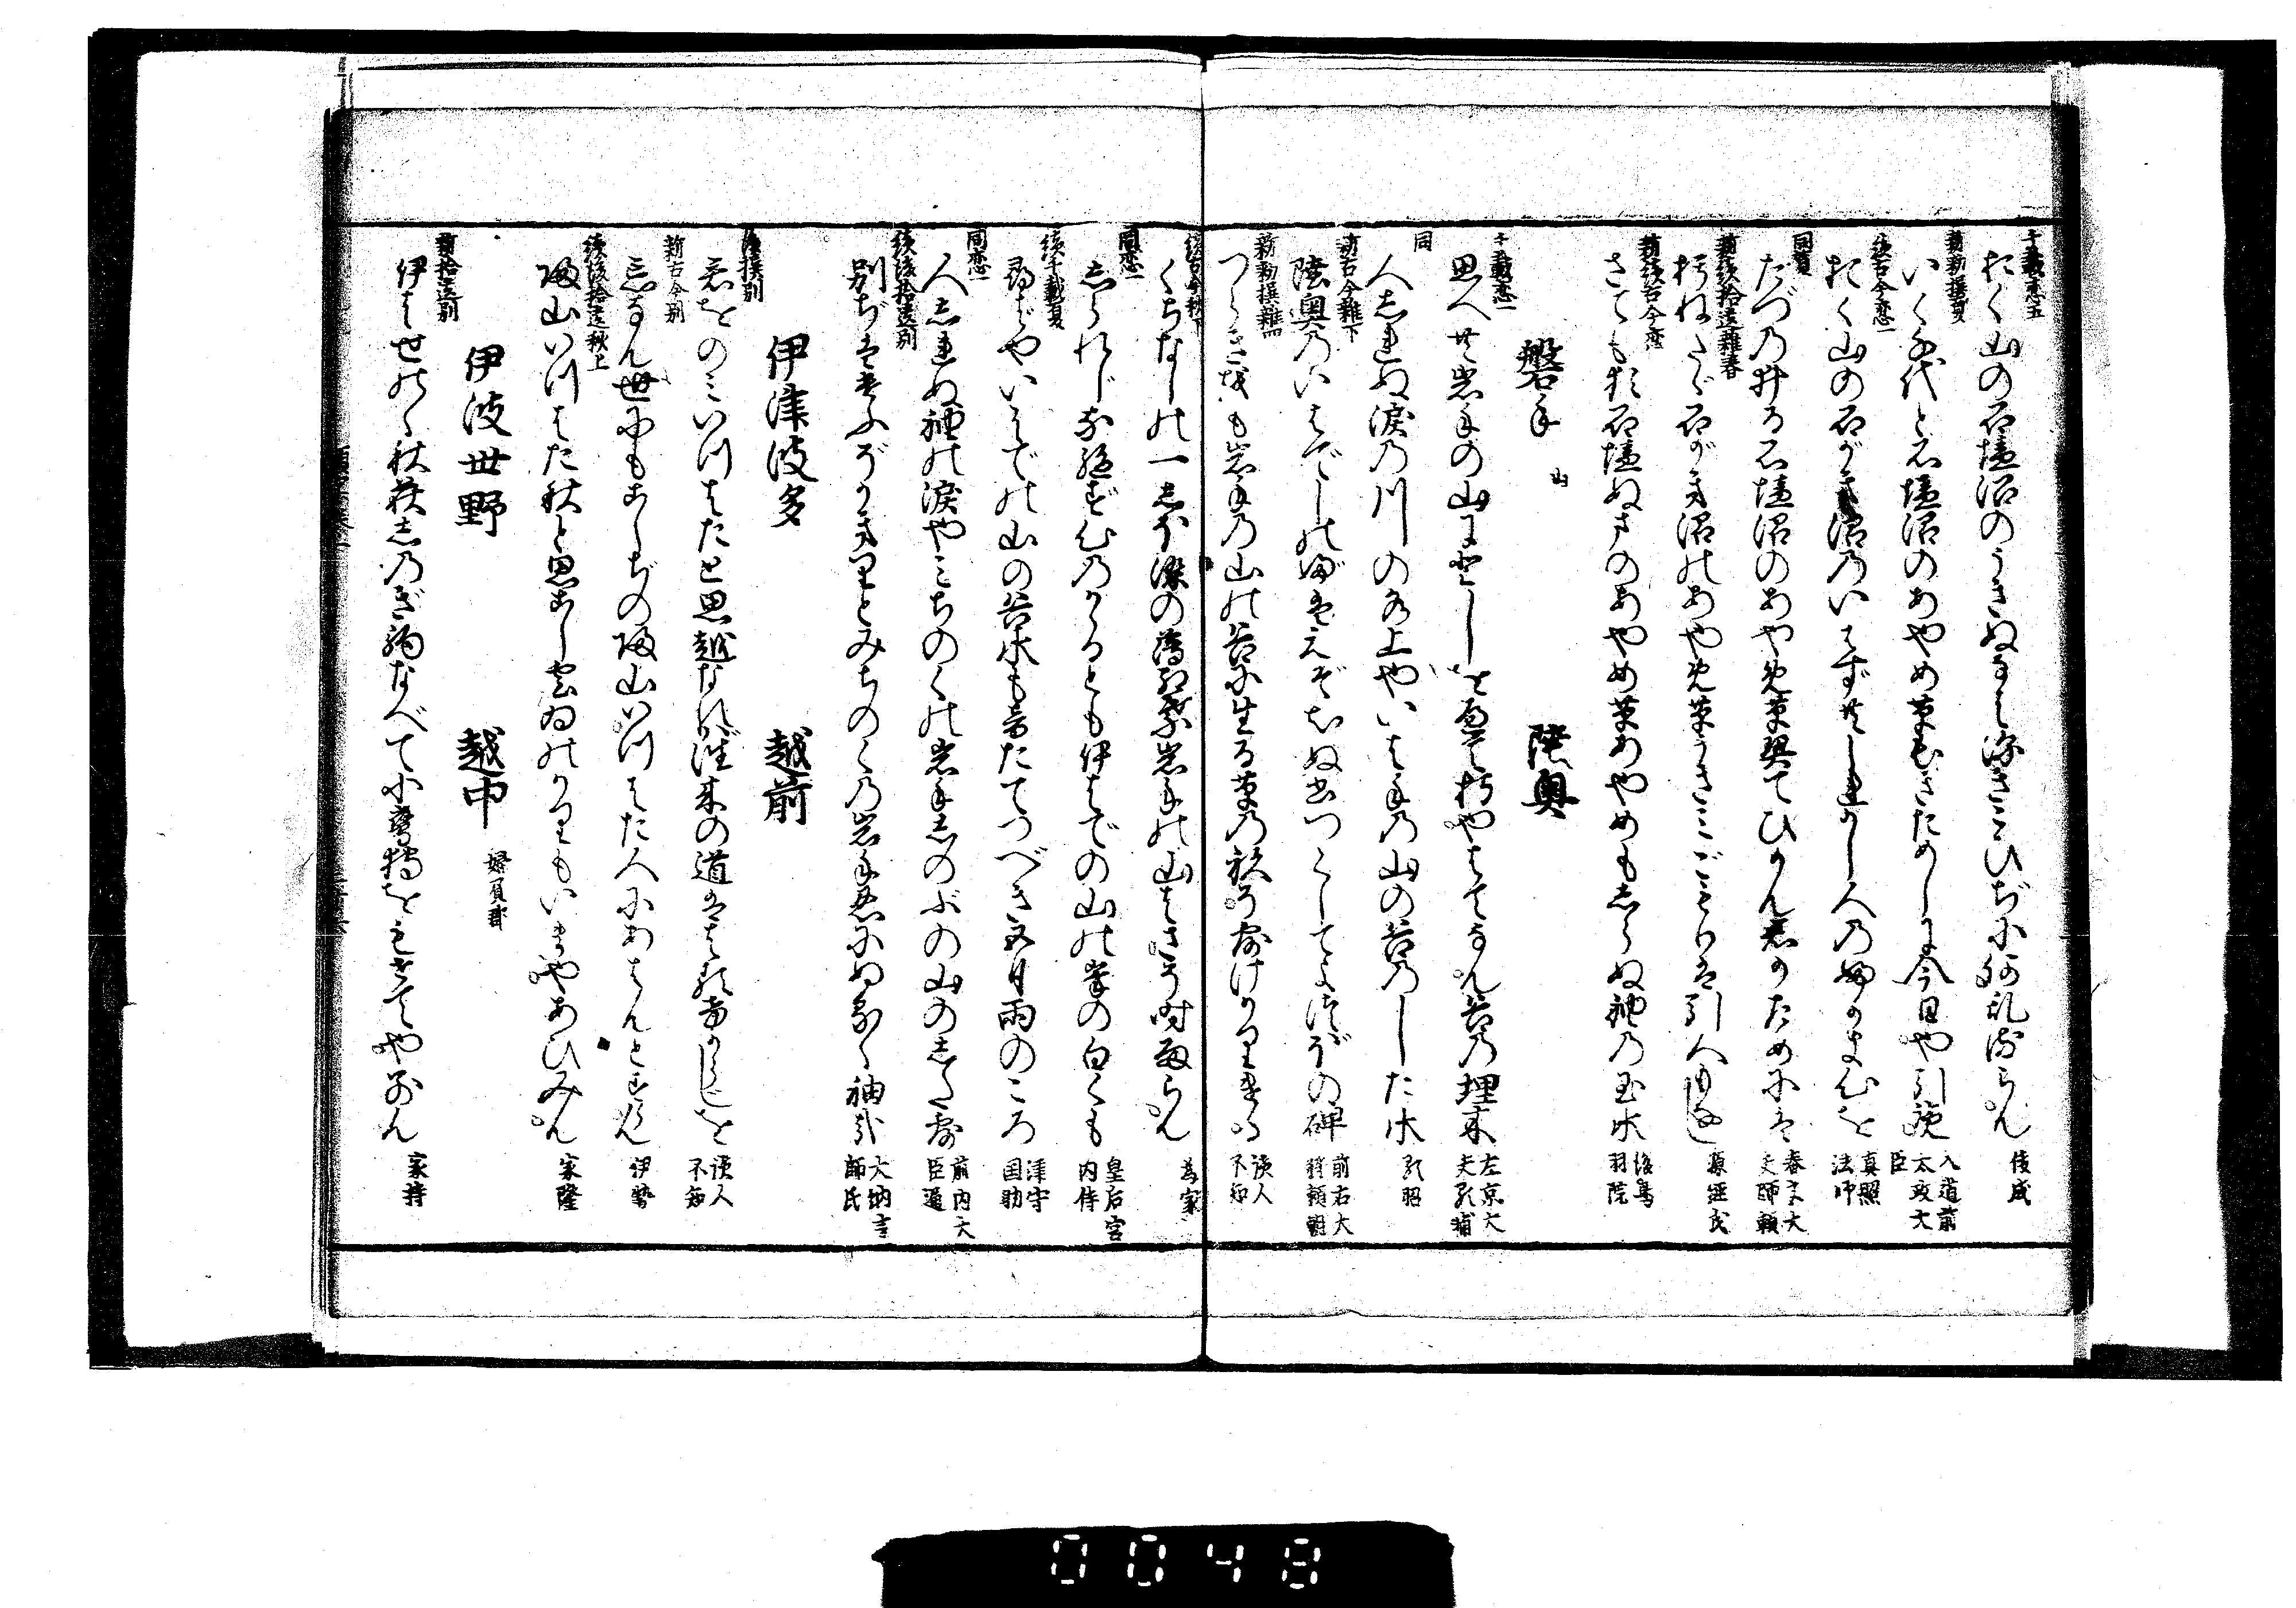 千載恋五
おく山の石墻沼のうきぬなは深きこひぢに何乱けらん 俊成
新勅撰夏
いく千代と石墻沼のあやめ草ながきためしに今日や引らん 入道前太政大臣
続古今恋一
おく山の石がき沼のいはず共しれかし人の婦かきむを 真照法師
同夏
たづの井る石墻沼のあやめ草異てひかん君がためには 春宮大夫師頼
新後拾遺雑春
朽ねたゞ石がき沼のあやめ草うきみごもりは引人もなし 源経氏
新続古今恋
さても猶石墻ぬまのあやめ草あやめもしらぬ袖の玉水 後鳥羽院
磐手 山 陸奥
千載恋一
思へ共岩手の山に年をへて朽やはてなん苔の埋木 左京大夫顕輔
同
人しれぬ涙の川の水上やいはでの山の谷のした水 顕昭
新古今雑下
陸奥のいはでしのぶはえぞしらぬ書つくしてよつぼの碑 前右大将頼朝
新勅撰雑四
つらきをも岩手の山の谷に生る草の袂ぞ露けかりける 読人不知
続古今秋下
くちなしの一しほ染の薄紅葉岩手の山はさぞ時雨らん 為家
同恋一
しられじな絶ず心のかゝるとも伊はでの山の峯の白くも 皇后宮内侍
続千載夏
尋ばやいはでの山の谷水も音たてつべき五月雨のころ 津守国助
同恋一
人しれぬ袖の涙やみちのくの岩手しのぶの山のした露 前内大臣通
続後拾遺別
別ぢをしふかき契とみちのくの岩手忍にぬるゝ袖哉 大納言師氏
伊津波多 越前
後撰別
君をのみいつはたと思越なれば往来の道ははるけからじを 読人不知
新古今別
忘なん世にもこしぢの帰山いつはた人にあはんとすらん 伊勢
続後拾遺秋上
帰山いつはた秋と思こし雲ゐのかりもいまやあひみん 家隆
伊波世野 越中 婦負郡
新拾遺別
伊はせのゝ秋萩しのぎ駒なべて小鷹狩をもせでや別ん 家持
0048